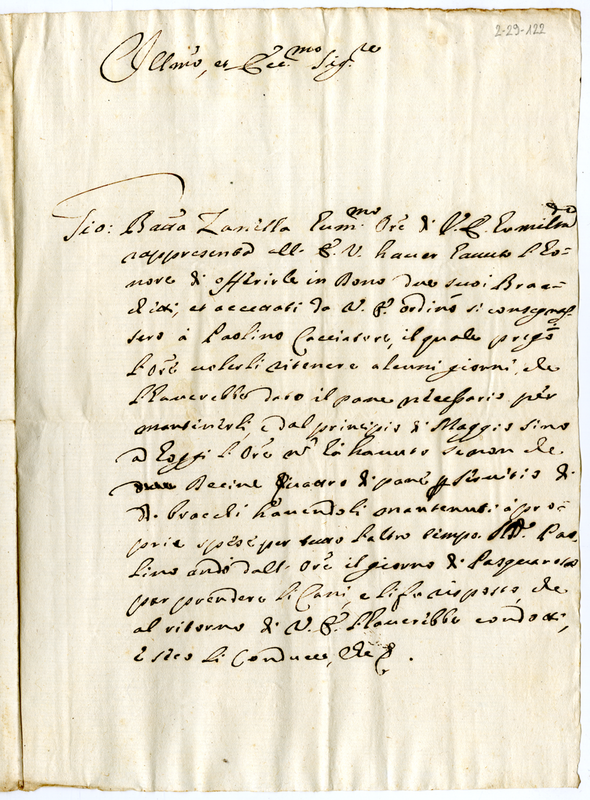 2-29-122
Illmo, et Ecc.mo Sig.re
Gio: Batta Zanella hum.mo Ore di V. E. humilmte
rappresenta all' E. V. haver havuto l'ho=
nore di offerirle in Dono due suoi Brac=
chi, et accettati da V. E. ordinò si consegnas=
sero à Paolino Cacciatore, il quale pregò
l'Ore volerli ritenere alcuni giorni, che
l'haverebbe dato il pane necessario per
mantenirli, e dal principio di Maggio sino
ad hoggi l'Ore nō hà havuto senon che
Decine quattro di pane p servitio di
d. bracchi havendoli mantenuti à pro=
prie spese per tutto l'altro tempo. Pao
lino andò dall' Ore il giorno di Pasquarosa
per prendere li Cani, e li fù risposto, che
al ritorno di V. E. l'haverebbe condotti,
e steo li conduce, Che